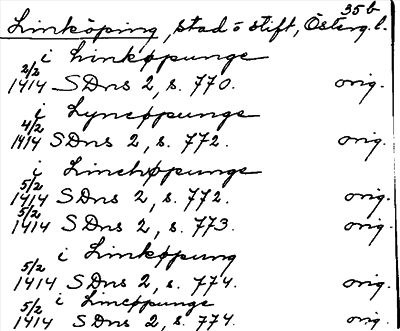 35b
Linköping, stad o stift, Österg.l.
i Linkøpunge
2/2 1414 SDns 2, s. 770. orig.
i Lyncøpunge
4/2 1414 SDns 2, s. 772. orig.
i Linchøpunge
5/2 1414 SDns 2, s. 772. orig.
5/2 1414 SDns 2, s. 773. orig.
i Linkøpung
5/2 1414 SDns 2, s. 774. orig.
i Lincøpunge
5/2 1414 SDns 2, s. 774. orig.